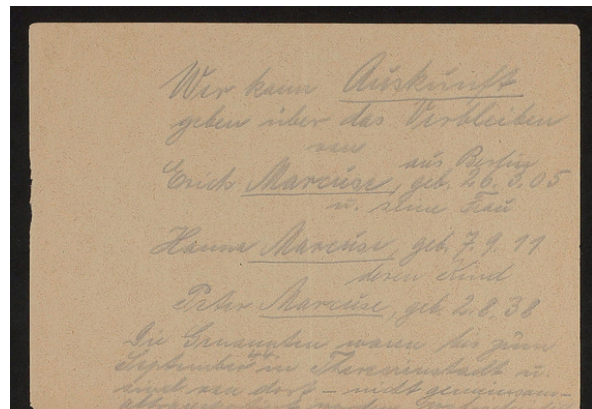 Wer kann Auskunft
geben über das Verbleiben
von
aus Berlin
Erich Marcuse, geb. 26.3.05
u. seine Frau
Hanna Marcuse, geb. 7.9.11
deren Kind
Peter Marcuse, geb. 2.8.38
Die Genannten waren bis zum
September 44 in Theresienstadt u.
sind von dort – nicht gemeinsam –